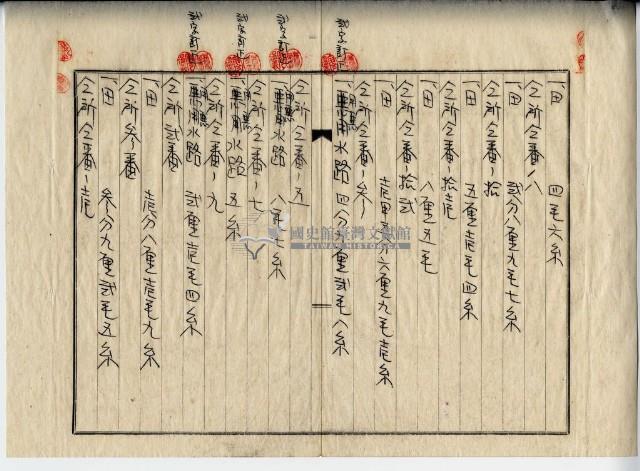 一田　四毛六糸
仝所仝番ノ八
一田　貳分八厘九毛七糸
仝所仝番ノ拾
一田　五厘壱毛四糸
仝所仝番ノ拾壱
一田　八厘五毛
仝所仝番ノ拾貳
一田　六厘九毛壱糸
仝所仝番ノ参ノ
用悪水路　四分九厘貳毛八糸
貳字訂正
仝所仝番ノ五
用悪水路　八毛七糸
貳字訂正
仝所仝番ノ七
用悪水路　五糸
貳字訂正
仝所仝番ノ九
用悪水路　貳厘壱毛四糸
貳字訂正
仝所貳番
一田　壱分八厘壱毛九糸
仝所参番
一田　参分九厘貳毛五糸
仝所仝番ノ壱
國史館臺灣文獻館
TAIWAN HISTORICA